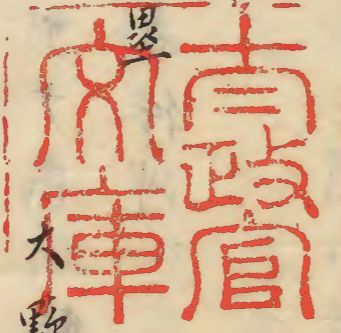 太政官
文庫
大野